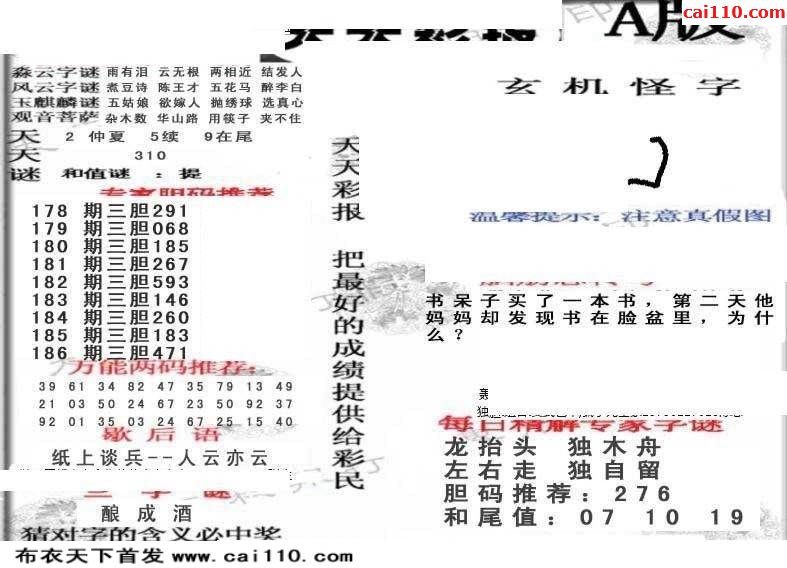 cai110.com
A版
淼云字谜 雨有泪 云无根 两相近 结发人
风云字谜 煮豆诗 陈王才 五花马 醉李白
玉麒麟谜 五姑娘 欲嫁人 抛绣球 选真心
观音菩萨 杂木数 华山路 用筷子 夹不住
天 2 仲夏 5续 9在尾
天 310
谜 和值谜 : 提
专家胆码推荐
178 期三胆291
179 期三胆068
180 期三胆185
181 期三胆267
182 期三胆593
183 期三胆146
184 期三胆260
185 期三胆183
186 期三胆471
万能两码推荐:
39 61 34 82 47 35 79 13 49
21 03 50 24 67 23 50 92 37
92 01 35 03 24 67 25 15 40
歇后语
纸上谈兵--人云亦云
三字谜
酿成酒
猜对字的含义必中奖
天天彩报 把最好的成绩提供给彩民
玄机怪字
温馨提示: 注意真假图
书呆子买了一本书，第二天他
妈妈却发现书在脸盆里，为什
么？
每日精解专家字谜
龙抬头 独木舟
左右走 独自留
胆码推荐: 276
和尾值: 07 10 19
布衣天下首发 www.cai110.com